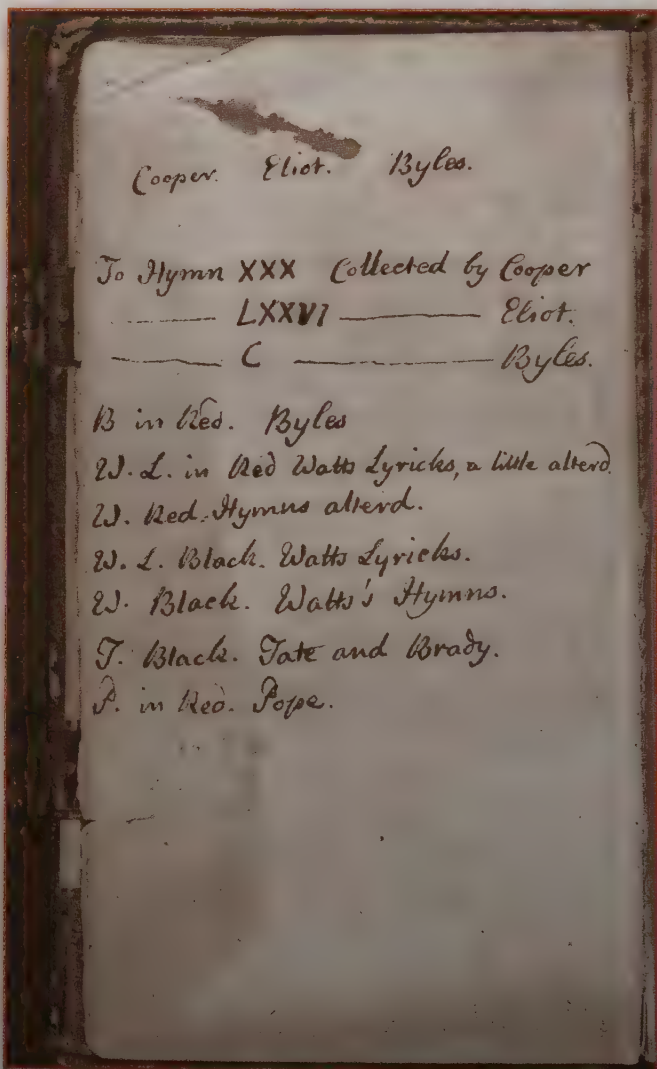 Cooper. Eliot. Byles.
To Hymn XXX Collected by Cooper
—— LXXVI —— Eliot.
—— C —— Byles.
B in Red. Byles
W. L. in Red Watts Lyricks, a little alterd.
W. Red. Hymns alterd.
W. L. Black. Watts Lyricks.
W. Black. Watts's Hymns.
T. Black. Tate and Brady.
P. in Red. Pope.